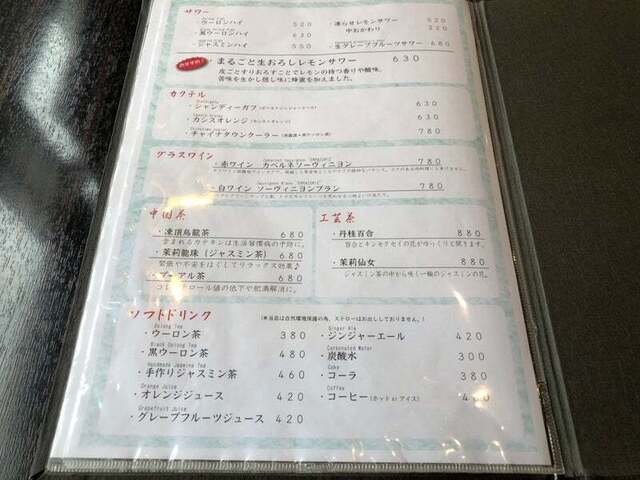 サワー
・ウーロンハイ 520
・黒ウーロンハイ 630
・ジャスミンハイ 550
・凍らせレモンサワー 520
中おかわり 320
・生グレープフルーツサワー 680
おすすめ!
・まるごと生おろしレモンサワー 630
皮ごとすりおろすことでレモンの持つ香りや酸味、
苦味を生かし隠し味に蜂蜜を加えました。
カクテル
・シャンディーガフ 630
・カシスオレンジ 630
・チャイナタウンクーラー 780
グラスワイン
・赤ワイン カベルネソーヴィニヨン 780
・白ワイン ソーヴィニヨンブラン 780
中国茶
・凍頂烏龍茶 680
含まれるカテキンは生活習慣病の予防に。
・茉莉龍珠(ジャスミン茶) 680
緊張や不安をほぐしてリラックス効果♪
・プーアル茶 680
コレステロール値の低下や肥満解消に。
工芸茶
・丹桂百合 880
百合とキンモクセイの花がゆっくりと開きます。
・茉莉仙女 880
ジャスミン茶の中から咲く一輪のジャスミンの花。
ソフトドリンク
(※当店は自然環境保護の為、ストローはお出ししておりません。)
Oolong Tea
・ウーロン茶 380
Black Oolong Tea
・黒ウーロン茶 480
Handmade Jasmine Tea
・手作りジャスミン茶 460
Orange Juice
・オレンジジュース 420
Grapefruit Juice
・グレープフルーツジュース 420
Ginger Ale
・ジンジャーエール 420
Carbonated Water
・炭酸水 300
Coke
・コーラ 380
Coffee
・コーヒー(ホット or アイス)